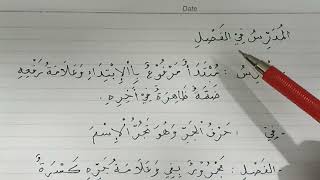 Date
المُدَرِّسُ فِي الفَصْلِ
مُبْتَدَأٌ مَرْفُوْعٌ بِالْإِبْتِدَاءِ وَعَلَامَةُ رَفْعِهِ
ضَمَّةٌ ظَاهِرَةٌ فِي آخِرِهِ.
- فِي : حَرْفُ الجَرِّ وَهُوَ يَجُرُّ الْإِسْمَ
- الفَصْلِ : مَجْرُوْرٌ بِفِي وَعَلَامَةُ جَرِّهِ كَسْرَةٌ